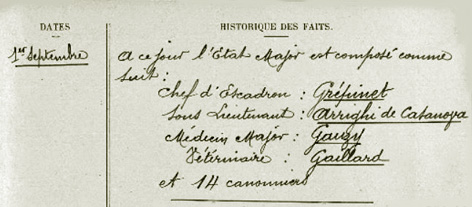 DATES
HISTORIQUE DES FAITS.
1er Septembre
A ce jour l'Etat Major est composé comme
suit :
Chef d'Escadron : Gréfinet
Sous Lieutenant : Arrighi de Casanova
Médecin Major : Gauzy
Vétérinaire : Gaillard
et 14 canonniers